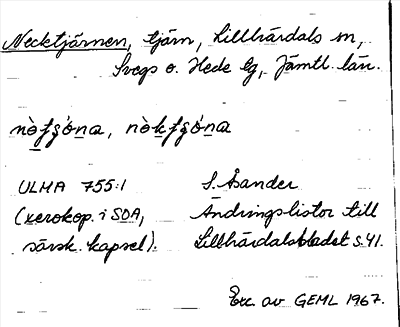 Necktjärnen, tjärn, Lillhärdals sn,
Svegs o. Hede tg, Jämtl. län.
ULMA 755:1 S. Åsander
(xerokop. i SOA, Ändringslistor till
särsk. kapsel). Lillhärdalsbladet s. 41.
Exc. av GEML 1967.